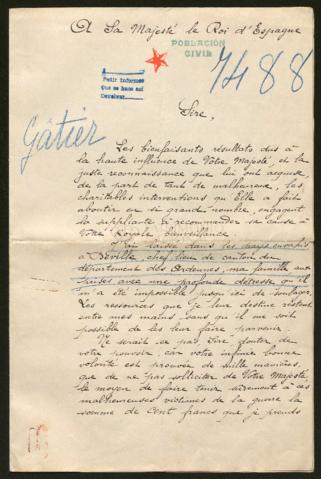 A Sa Majesté le Roi d'Espagne
POBLACIÓN
CIVIL
7488
Pedir informes
que se hace así
Gâtier
Sire,
Les bienfaisants résultats dus à
la haute influence de Votre Majesté, et la
juste reconnaissance que lui ont acquise
de la part de tant de malheureux, les
charitables interventions qu'Elle a fait
aboutir en si grand nombre, engagent
la suppliante à recommander sa cause à
Votre Royale bienveillance.
J'ai laissé dans les pays envahis
à Deville, chef lieu de canton du
département des Ardennes, ma famille aux
prises avec une profonde détresse qu'il
m'a été impossible jusqu'ici de soulager.
Les ressources que je leur destine restent
entre mes mains sans qu'il me soit
possible de les leur faire parvenir.
Ne serait ce pas Sire douter de
votre pouvoir, car votre infinie bonne
volonté est prouvée de mille manières,
que de ne pas solliciter de Votre Majesté
le moyen de faire tenir sûrement à ces
malheureuses victimes de la guerre la
somme de Cent francs que je prends